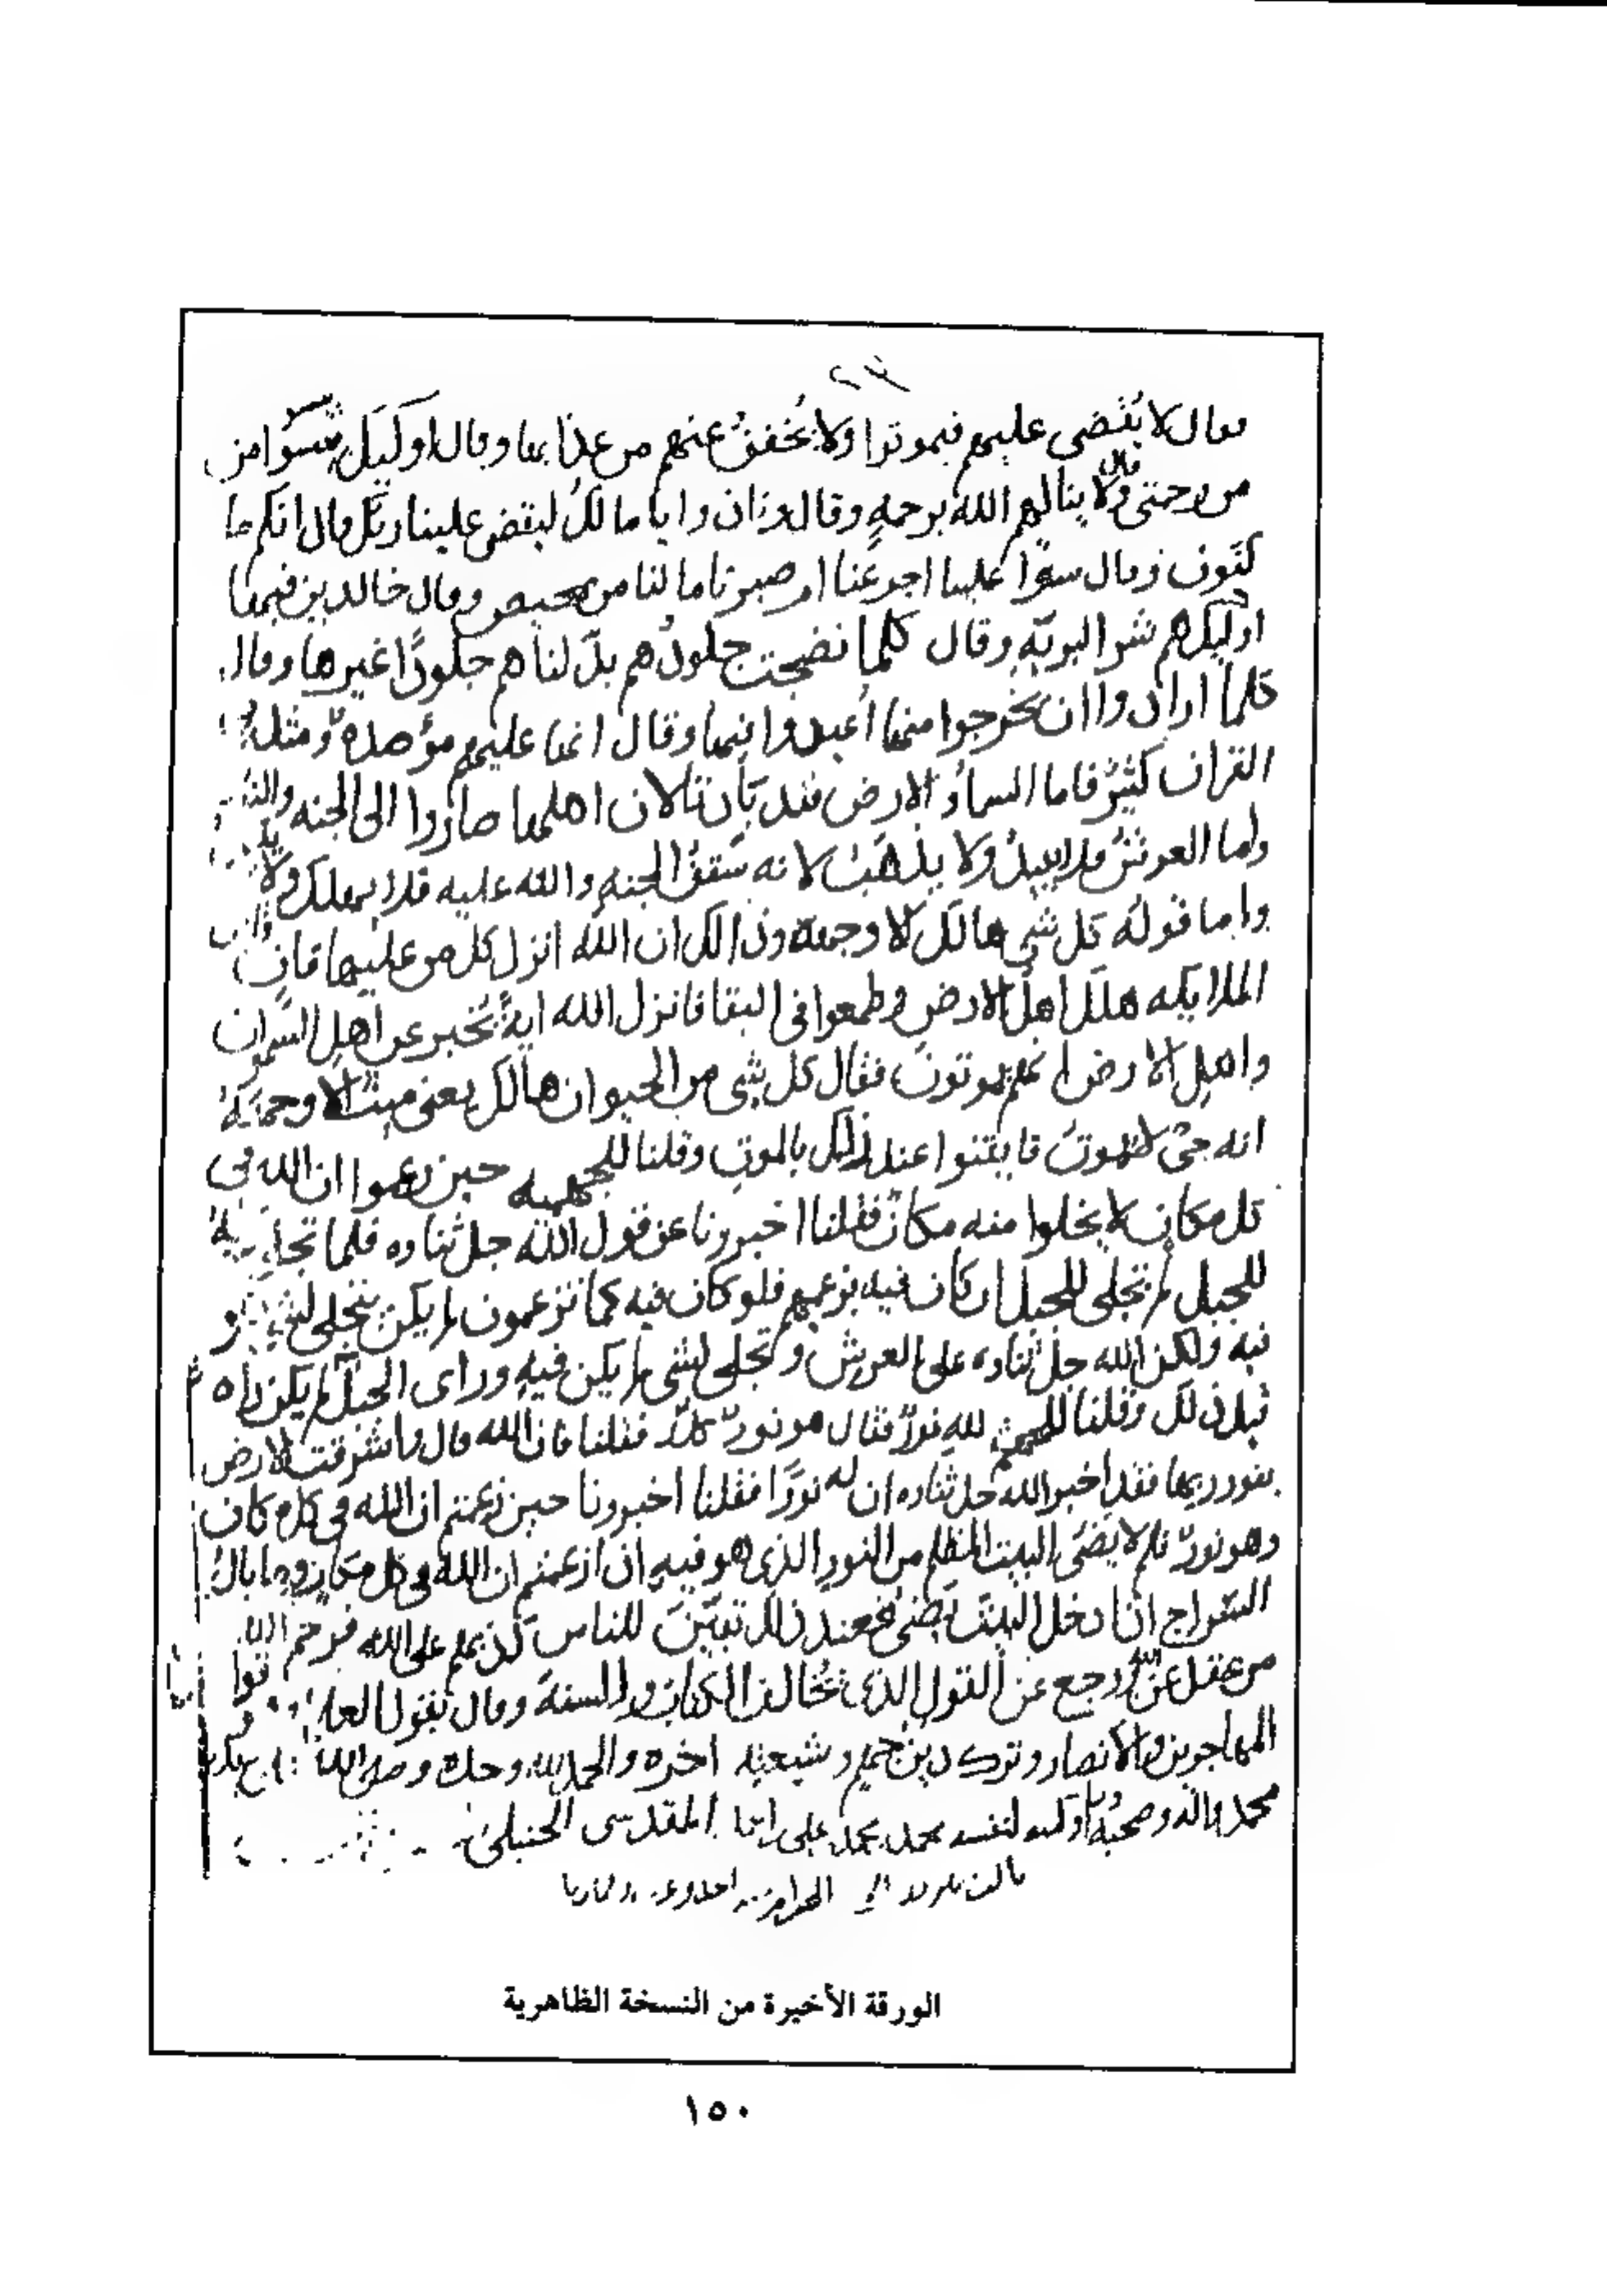 فقال لا يُقضى عليهم فيموتوا ولا يُخفف عنهم من عذابها وقال اوليك يئسوا من
من رحمتي وقال لا ينالهم الله برحمةٍ وقال ونادوا يا مالك ليقض علينا ربك قال انكم ما
كثون وقال سوا علينا اجزعنا ام صبرنا ما لنا من محيص وقال خالدين فيها
اوليك هم شر البريّه وقال كلما نضجت جلودُهم بدّلناهم جلودًا غيرها وقال
كلما ارادوا ان يخرجوا منها اُعيدوا فيها وقال انها عليهم مؤصده ومثلُه
القران كثيرٌ فاما السماُ والارض فقد بادتا لان اهلها صاروا الى الجنه والنار
واما العرش فلا يبيدُ ولا يذهَبُ لانه سَقفُ الجنه والله عليه فلا يهلك ولا يبيد
واما قوله كل شي هالك الا وجهه وذالك ان الله انزل كل من عليها فان
الملايكه هلك اهل الارض وطمعوا في البقا فانزل الله ايةً يُخبر عن اهل السموات
واهل الارض انهم يموتون فقال كل شي من الحيوان هالك يعني ميت الا وجهه
انه حيٌ لا يموتُ فايقنوا عند ذلك بالموت وقلنا للجهميه حين زعموا ان الله في
كل مكان لا يخلوا منه مكانٌ فقلنا اخبرونا عن قول الله جل ثناوه فلما تجلى ربه
للجبل لم تجلى للجبل ان كان فيه بزعمهم فلو كان فيه كما تزعمون لم يكن يتجلى لشي هو
فيه ولكن الله جل ثناوه على العرش وتجلى لشي لم يكن فيه وراى الجبل لم يكن راه
قبل ذلك وقلنا للجهميه لله نورٌ فقال هو نورٌ كله فقلنا فان الله قال واشرقت الارض
بنور ربها فقد اخبر الله جل ثناوه ان له نورًا فقلنا اخبرونا حين زعمتم ان الله في كل مكان
وهو نورٌ فلم لا يضئ البيت المظلم من النور الذي هو فيه اذ زعمتم ان الله في كل مكان وما بال
السراج اذا دخل البيت يضئ فعند ذلك تبيّن للناس كذبهم على الله فرحم الله
من عقل عن الله ورجع عن القول الذي يخالف الكتاب والسنة وقال بقول العلما
المهاجرين والانصار وترك دين جهم وشيعته اخره والحمد لله وحده وصلى الله
محمد واله وصحبه وكتبه لنفسه محمد محمد على المقدسي الحنبلي
الورقة الأخيرة من النسخة الظاهرية
١٥٠